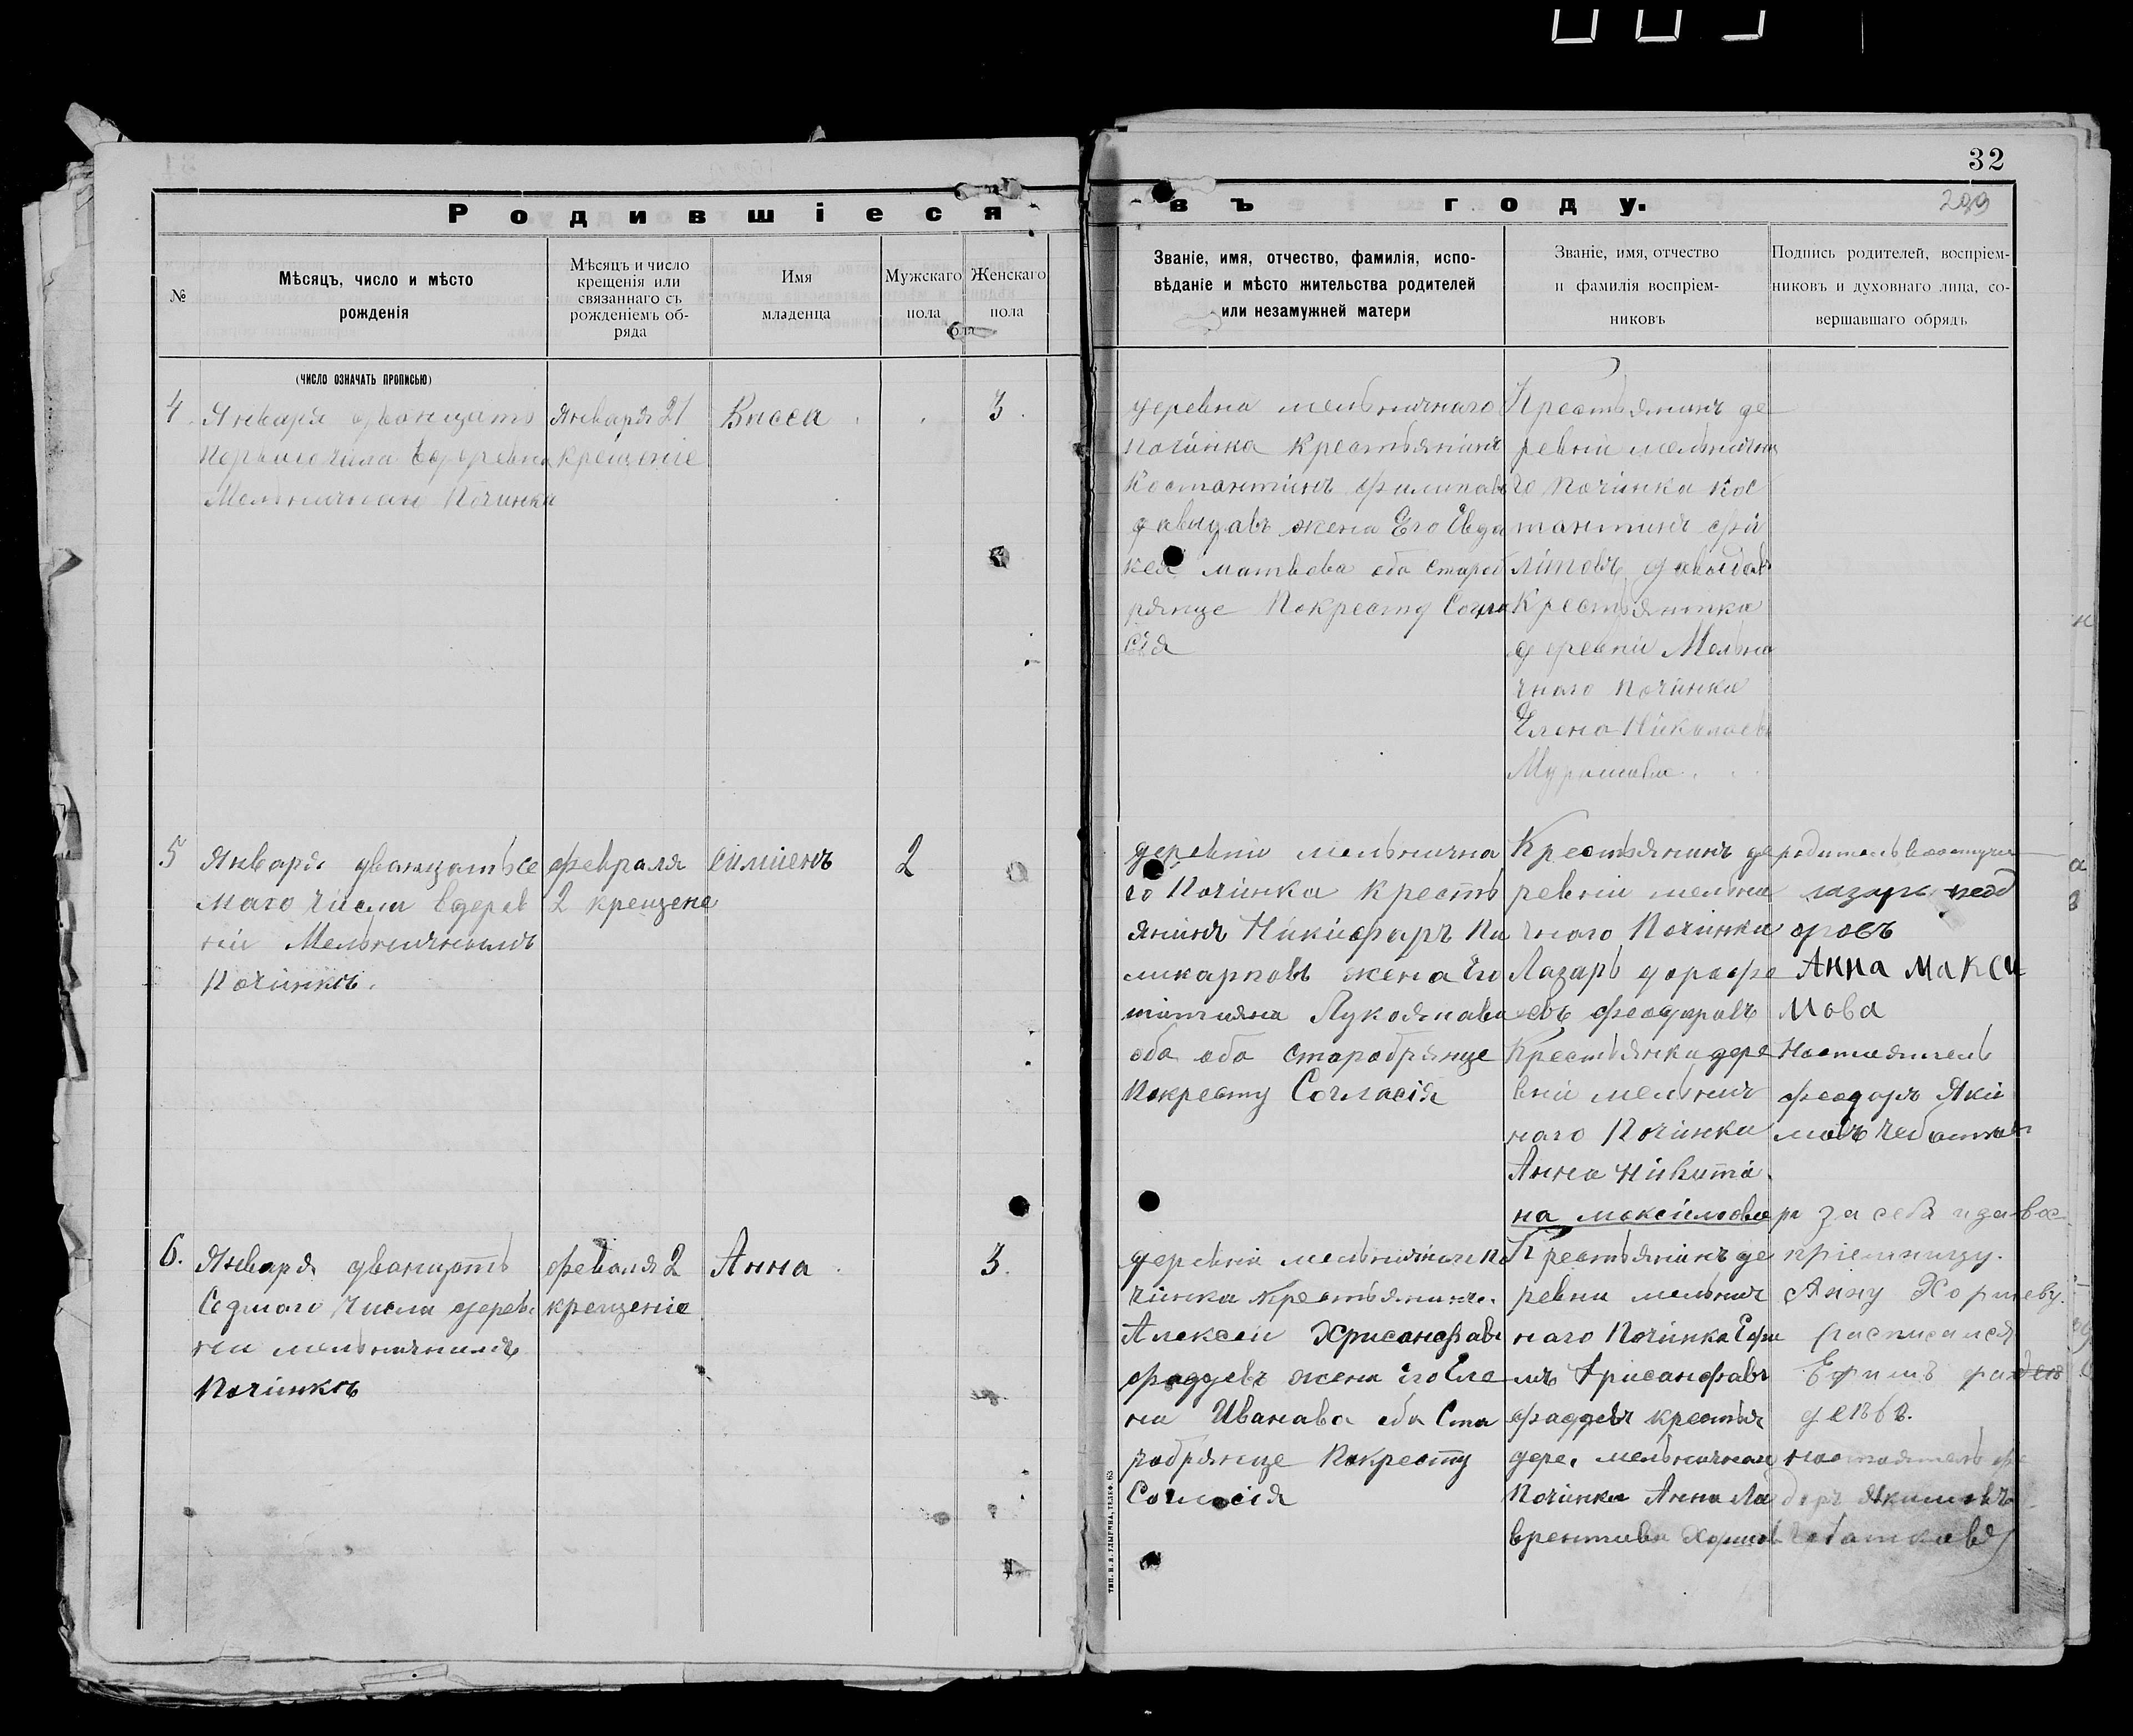 32
Родившіеся въ году.
299
№
Мѣсяцъ, число и мѣсто
рожденія
Мѣсяцъ и число
крещенія или
связаннаго съ
рожденіемъ об-
ряда
Имя
младенца
Мужскаго
пола
Женскаго
пола
Званіе, имя, отчество, фамилія, испо-
вѣданіе и мѣсто жительства родителей
или незамужней матери
Званіе, имя, отчество
и фамилія воспріем-
никовъ
Подпись родителей, воспріем-
никовъ и духовнаго лица, со-
вершавшаго обрядъ
(число означать прописью)
4.
Января двонцать
Перваго числа
Мельничнам Починки
Января 21
крещеніе
Васса
3.
деревна мельничнаго
починка крестьянинъ
Костантинъ Филипавъ
давыдавъ жена Его Евда
кея матвева оба староб
рянце Покресту Согла
сія
Крестьянинъ де
ревни мельнична
го починка кос
тантинъ фи
ліповъ давыдавъ
Крестьянинка
деревни Мельни
чнаго починка
Елена Николаевъ
Мурашова.
5
Января дванцать се
маго числа вдерев
ніи Мельничнымъ
Починкъ.
февраля
2 крещене
симіенъ
2
деревни мельнична
го Починка кресть
янинъ Никифаръ По
ликарповъ жена Его
татияна Лукоянава
оба оба старобрянце
Покресту Согласія
Крестьянинъ де
ревніи мельни
чнаго Починка
Лазарь дорофе
евъ феодаровъ
Крестьянка дере
вніи мельнич
наго Починка
Анна Никити
на максимова
лазарь
оровъ
Анна Макси
мова
Настаятель
феодаръ Яки
мовъ Чебатков
6.
Января дванцать
Седмаго числа дерев
неи мельничнымъ
Починкъ
феваля 2
крещеніе
Анна
3.
деревни мельничнаго По
чинка Крестьянинъ.
Алексеи Хрисанфавъ
фаддевъ жена Его Еле
на Иванава оба Ста
робрянце Покресту
Согласія
Крестьянинъ де
ревни мельнич
наго Починка Ефи
мъ Хрисанфавъ
фаддевъ крестья
дере. мельничнаго
Починка Анна Ла
врентива
за себя и за вос
пріемницу.
Анну Хоршеву.
расписался
Ефимъ фадеи
деевъ.
настаятель фе
доръ Якимовъ
Чебаткавъ
ТИП. Н. Я. УДЫГИНА, ТЕЛЕФ. 63